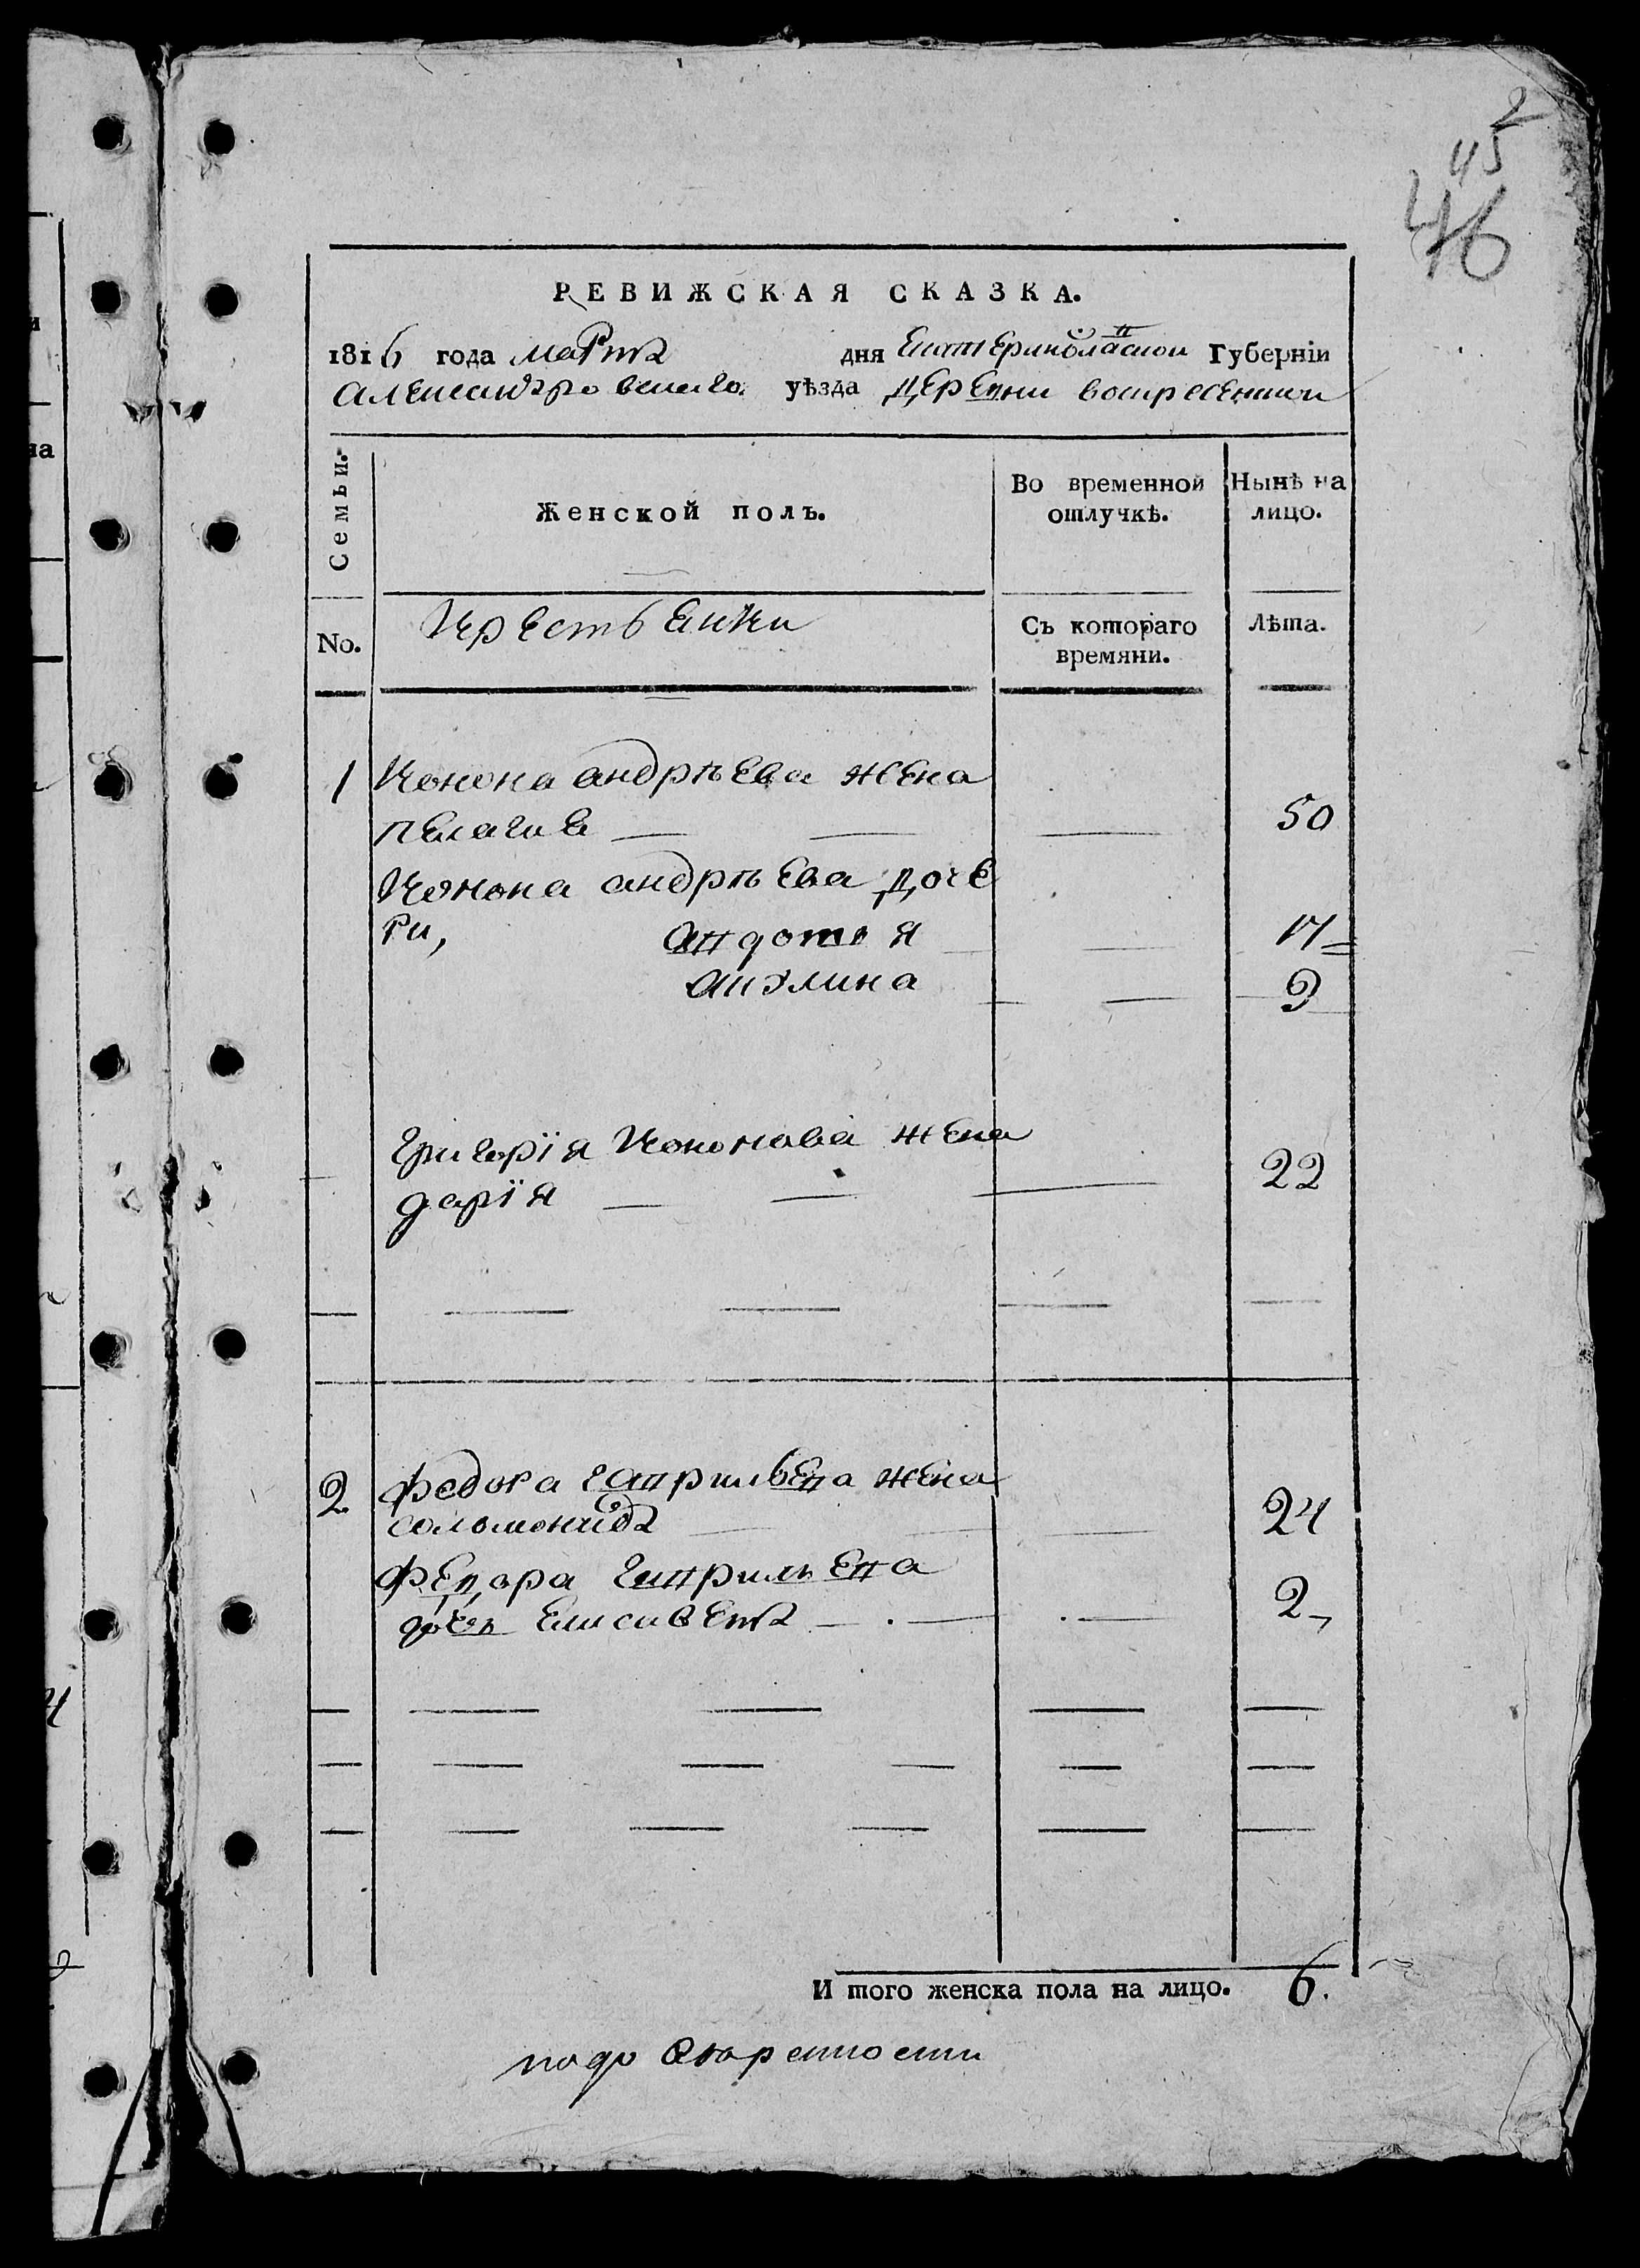 2
45
46
РЕВИЖСКАЯ СКАЗКА.
1816 года марта дня Екатеринославской Губернїи
Александровскаго уѣзда деревни воскресенской
Семьи.
Женской полъ.
Во временной отлучкѣ.
Нынѣ на лицо.
No.
Крестьянки
Съ котораго времяни.
Лѣта.
1 Конона андрѣева жена
пелагия — — — 50
Конона андрѣева доче
ри, авдотья — 17
акулина — — 9
Григорїя Кононова жена
дарїя — — — 22
2 федора гаврильева жена
соломонида — 24
Федора гаврильева
дочь Елисавета — — 2
И того женска пола на лицо. 6.